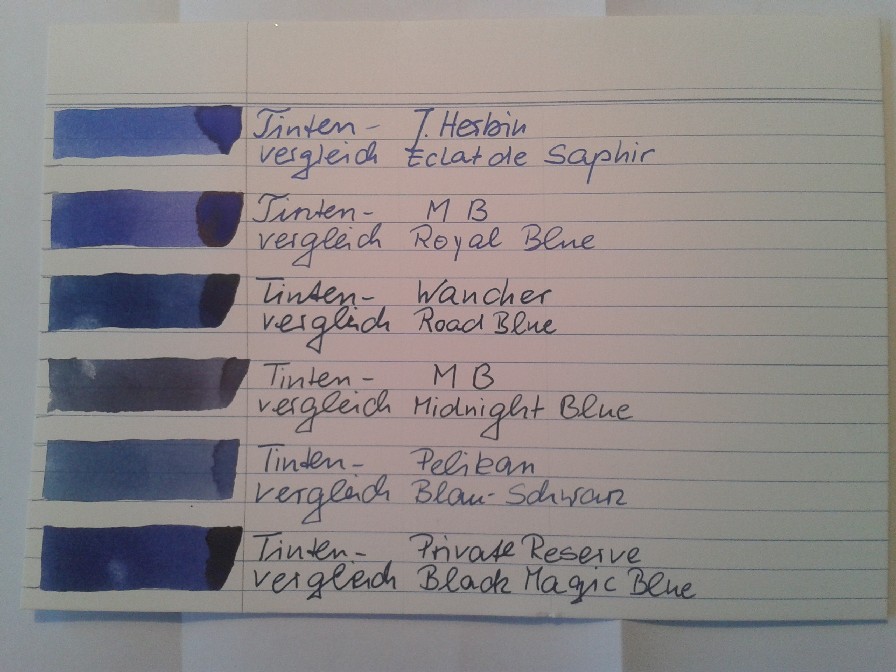 Tinten- J. Herbin
vergleich Eclat de Saphir
Tinten- M B
vergleich Royal Blue
Tinten- Wancher
vergleich Road Blue
Tinten- M B
vergleich Midnight Blue
Tinten- Pelikan
vergleich Blau-Schwarz
Tinten- Private Reserve
vergleich Black Magic Blue